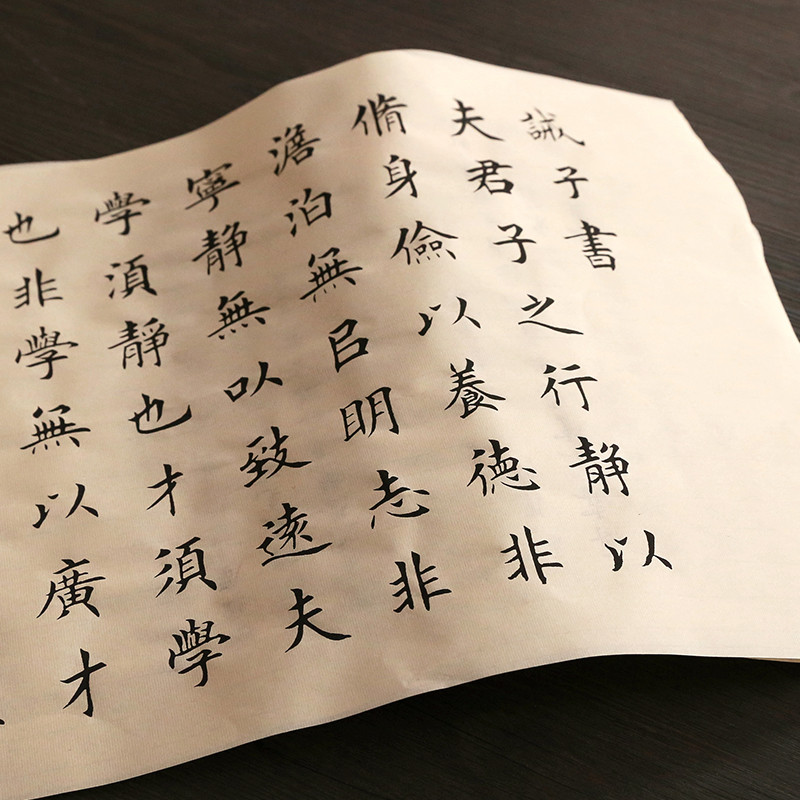 誡子書
夫君子之行靜以
脩身儉以養德非
澹泊無㠯明志非
寧靜無以致遠夫
學須靜也才須學
也非學無以廣才